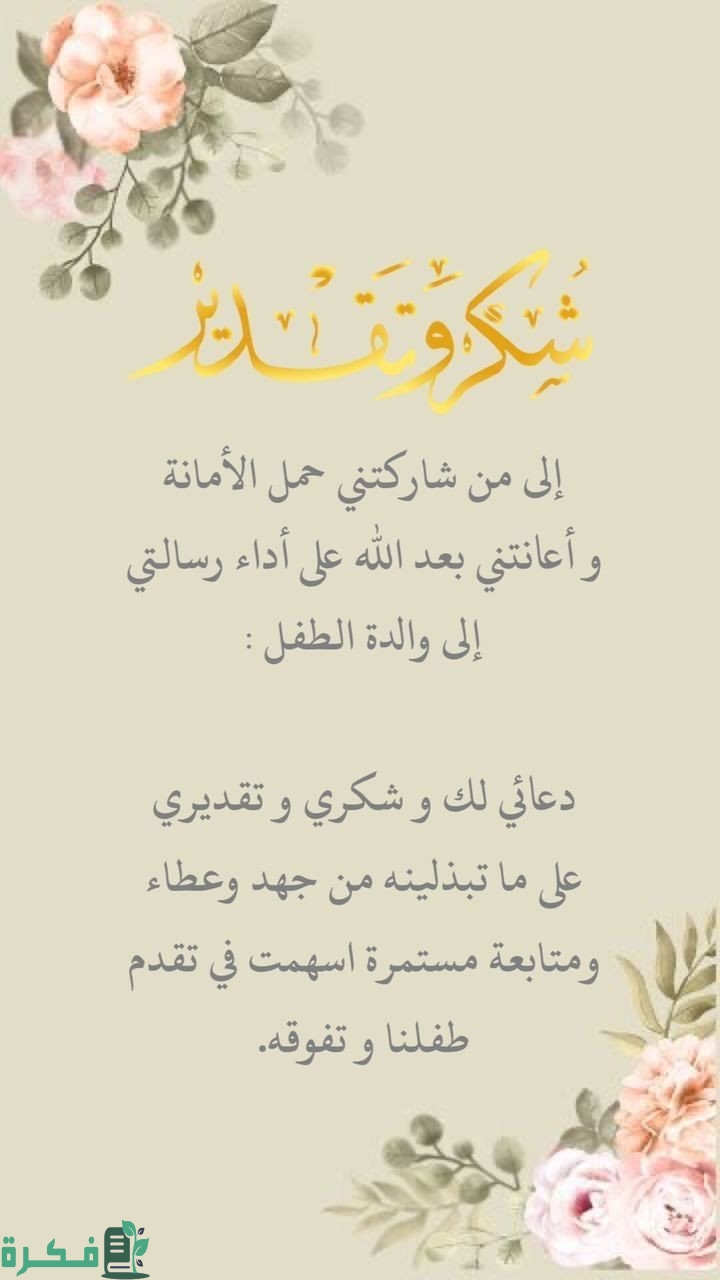 شُكْرٌ وَتَقْدِيْرٌ
إلى من شاركتني حمل الأمانة
و أعانتني بعد الله على أداء رسالتي
إلى والدة الطفل :
دعائي لك و شكري و تقديري
على ما تبذلينه من جهد وعطاء
ومتابعة مستمرة اسهمت في تقدم
طفلنا و تفوقه.
فكرة